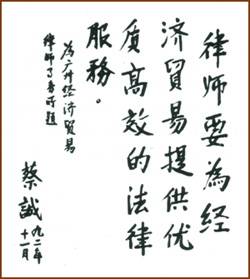 律师要為经
济貿易提供优
质高效的法律
服務。
為广州经济貿易
律师事务所題
蔡誠
九二年
十一月